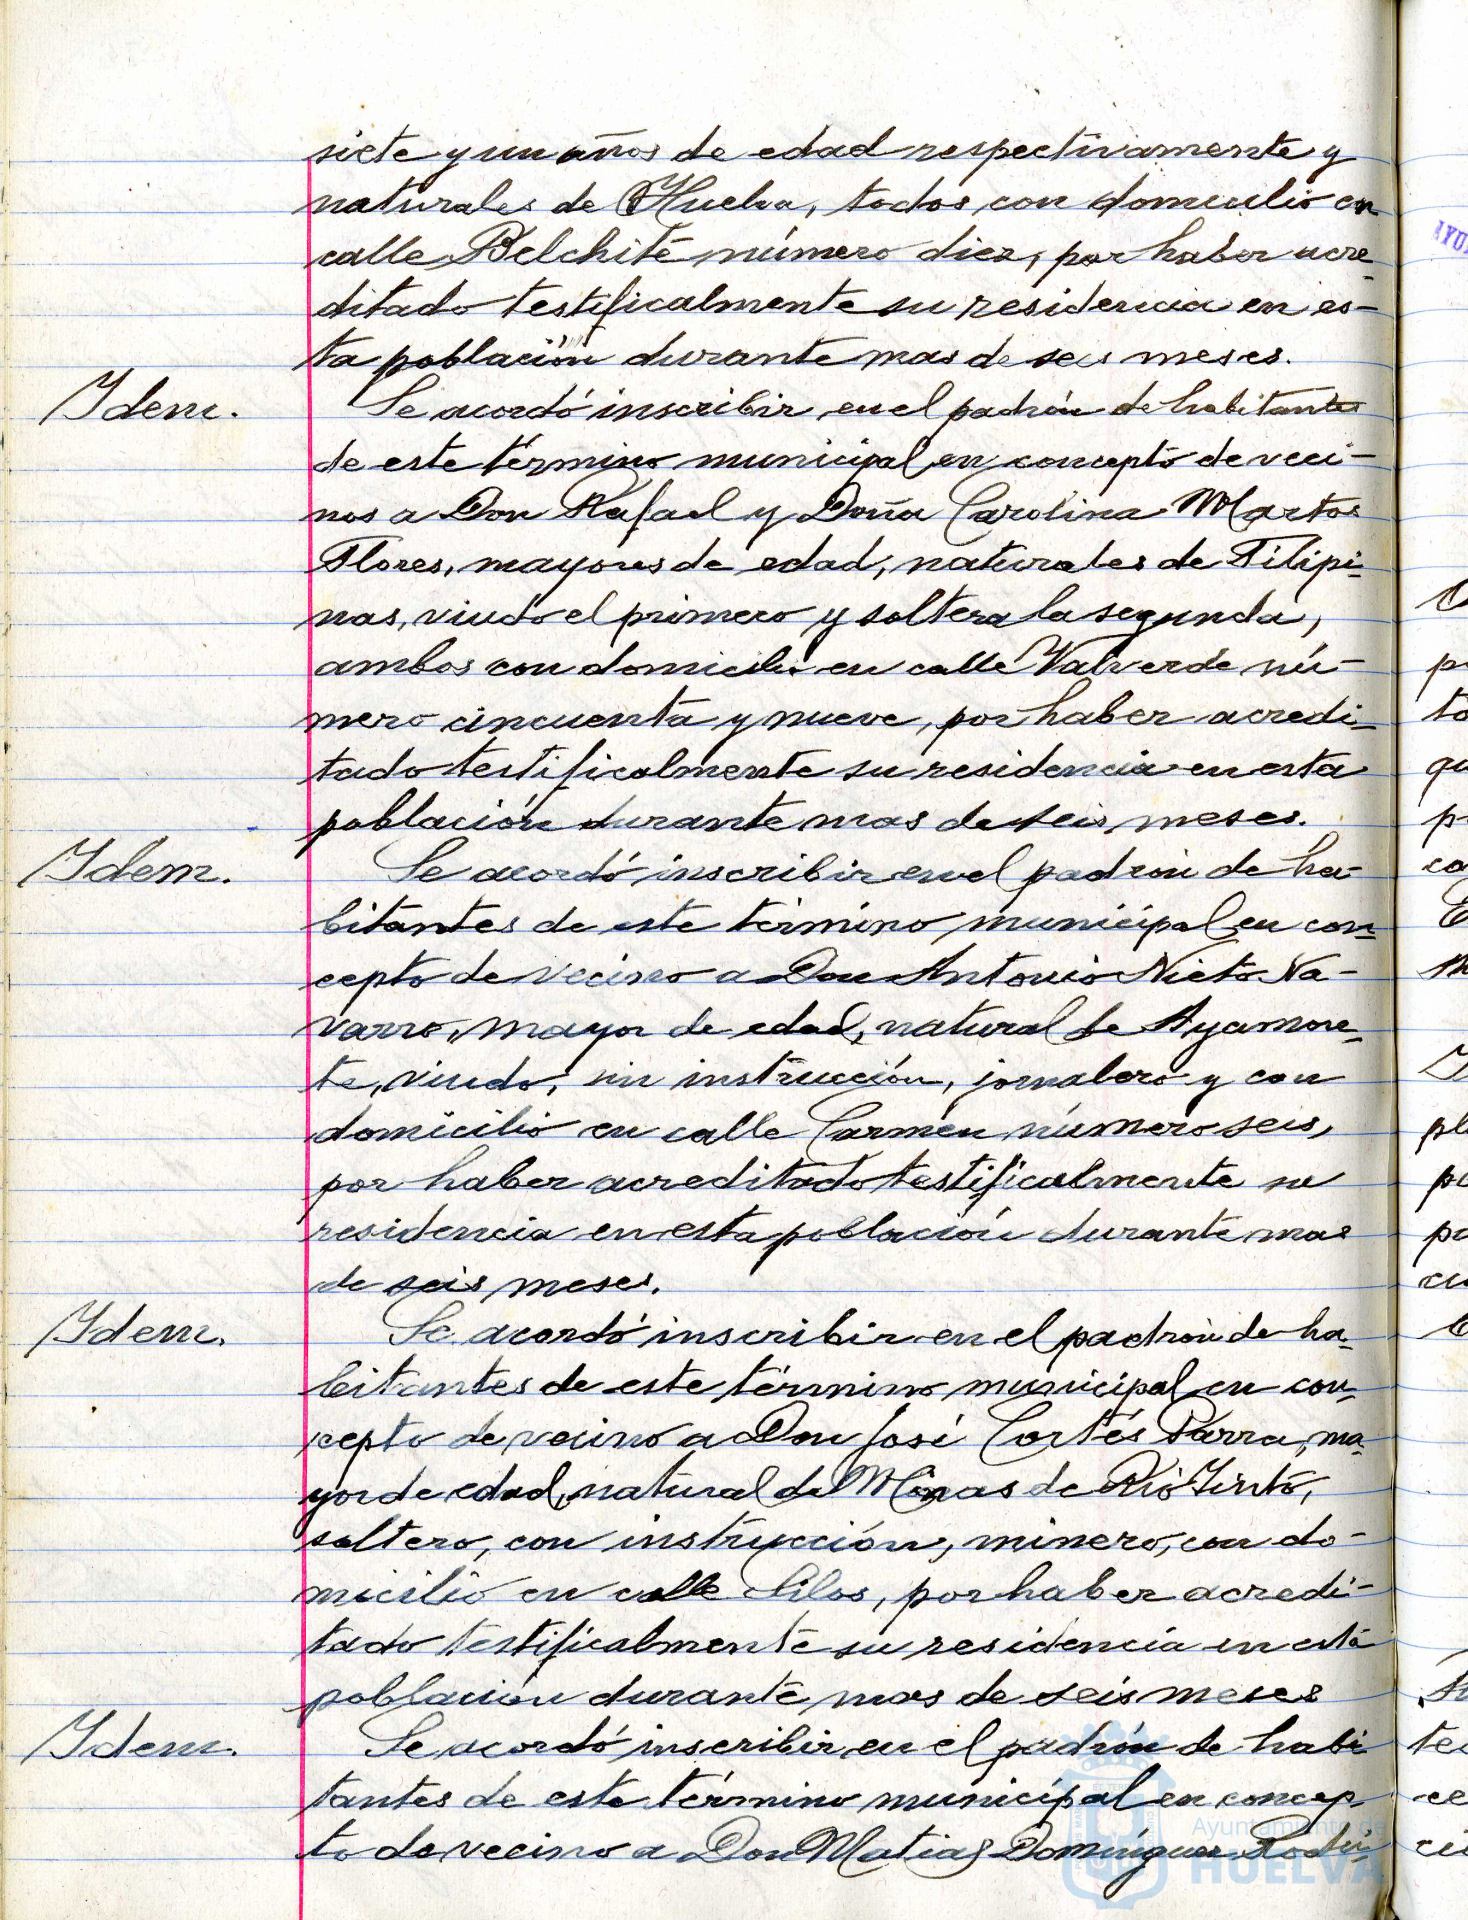 siete y un años de edad respectivamente y
naturales de Huelva, todos con domicilio en
calle Belchite número diez, por haber acre-
ditado testificalmente su residencia en es-
ta población durante mas de seis meses.
Idem.
Se acordó inscribir en el padrón de habitantes
de este término municipal en concepto de veci-
nos a Don Rafael y Doña Carolina Martos
Flores, mayores de edad, naturales de Filipi-
nas, viudo el primero y soltera la segunda,
ambos con domicilio en calle Valverde nú-
mero cincuenta y nueve, por haber acredi-
tado testificalmente su residencia en esta
población durante mas de seis meses.
Idem.
Se acordó inscribir en el padrón de ha-
bitantes de este término municipal en con-
cepto de vecino a Don Antonio Nieto Na-
varro, mayor de edad, natural de Ayamon-
te, viudo, sin instrucción, jornalero y con
domicilio en calle Carmen número seis,
por haber acreditado testificalmente su
residencia en esta población durante mas
de seis meses.
Idem.
Se acordó inscribir en el padrón de ha-
bitantes de este término municipal en con-
cepto de vecino a Don José Cortés Parra, ma-
yor de edad, natural de Minas de Rio Tinto,
soltero, con instrucción, minero, con do-
micilio en calle Silos, por haber acredi-
tado testificalmente su residencia en esta
población durante mas de seis meses
Idem.
Se acordó inscribir en el padrón de habi
tantes de este término municipal en concep-
to de vecino a Don Matias Domínguez Rodrí-
Ayuntamiento de
HUELVA